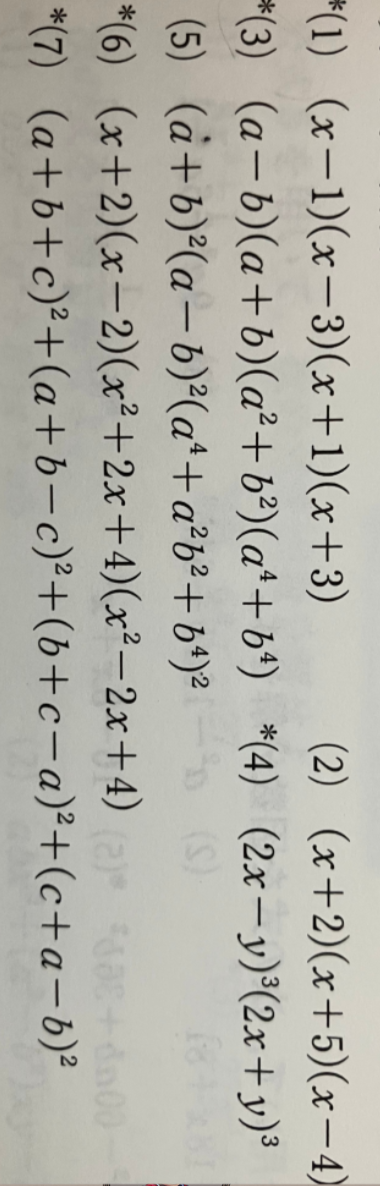 *(1) (x−1)(x−3)(x+1)(x+3) (2) (x+2)(x+5)(x−4)
*(3) (a−b)(a+b)(a²+b²)(a⁴+b⁴) *(4) (2x−y)³(2x+y)³
(5) (a+b)²(a−b)²(a⁴+a²b²+b⁴)²
*(6) (x+2)(x−2)(x²+2x+4)(x²−2x+4)
*(7) (a+b+c)²+(a+b−c)²+(b+c−a)²+(c+a−b)²